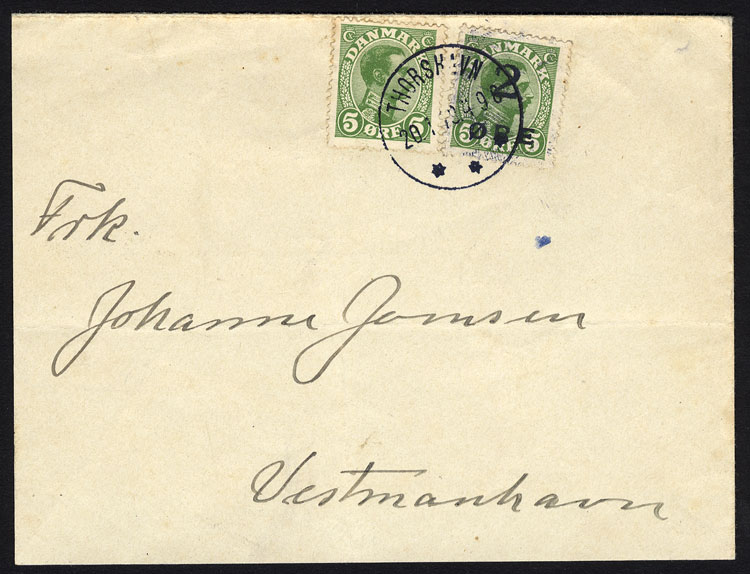 DANMARK
5 ØRE 5
DANMARK
5 ØRE 5
2
ØRE
THORSHAVN
Frk.
Johanne Jomsen
Vestmanhavn